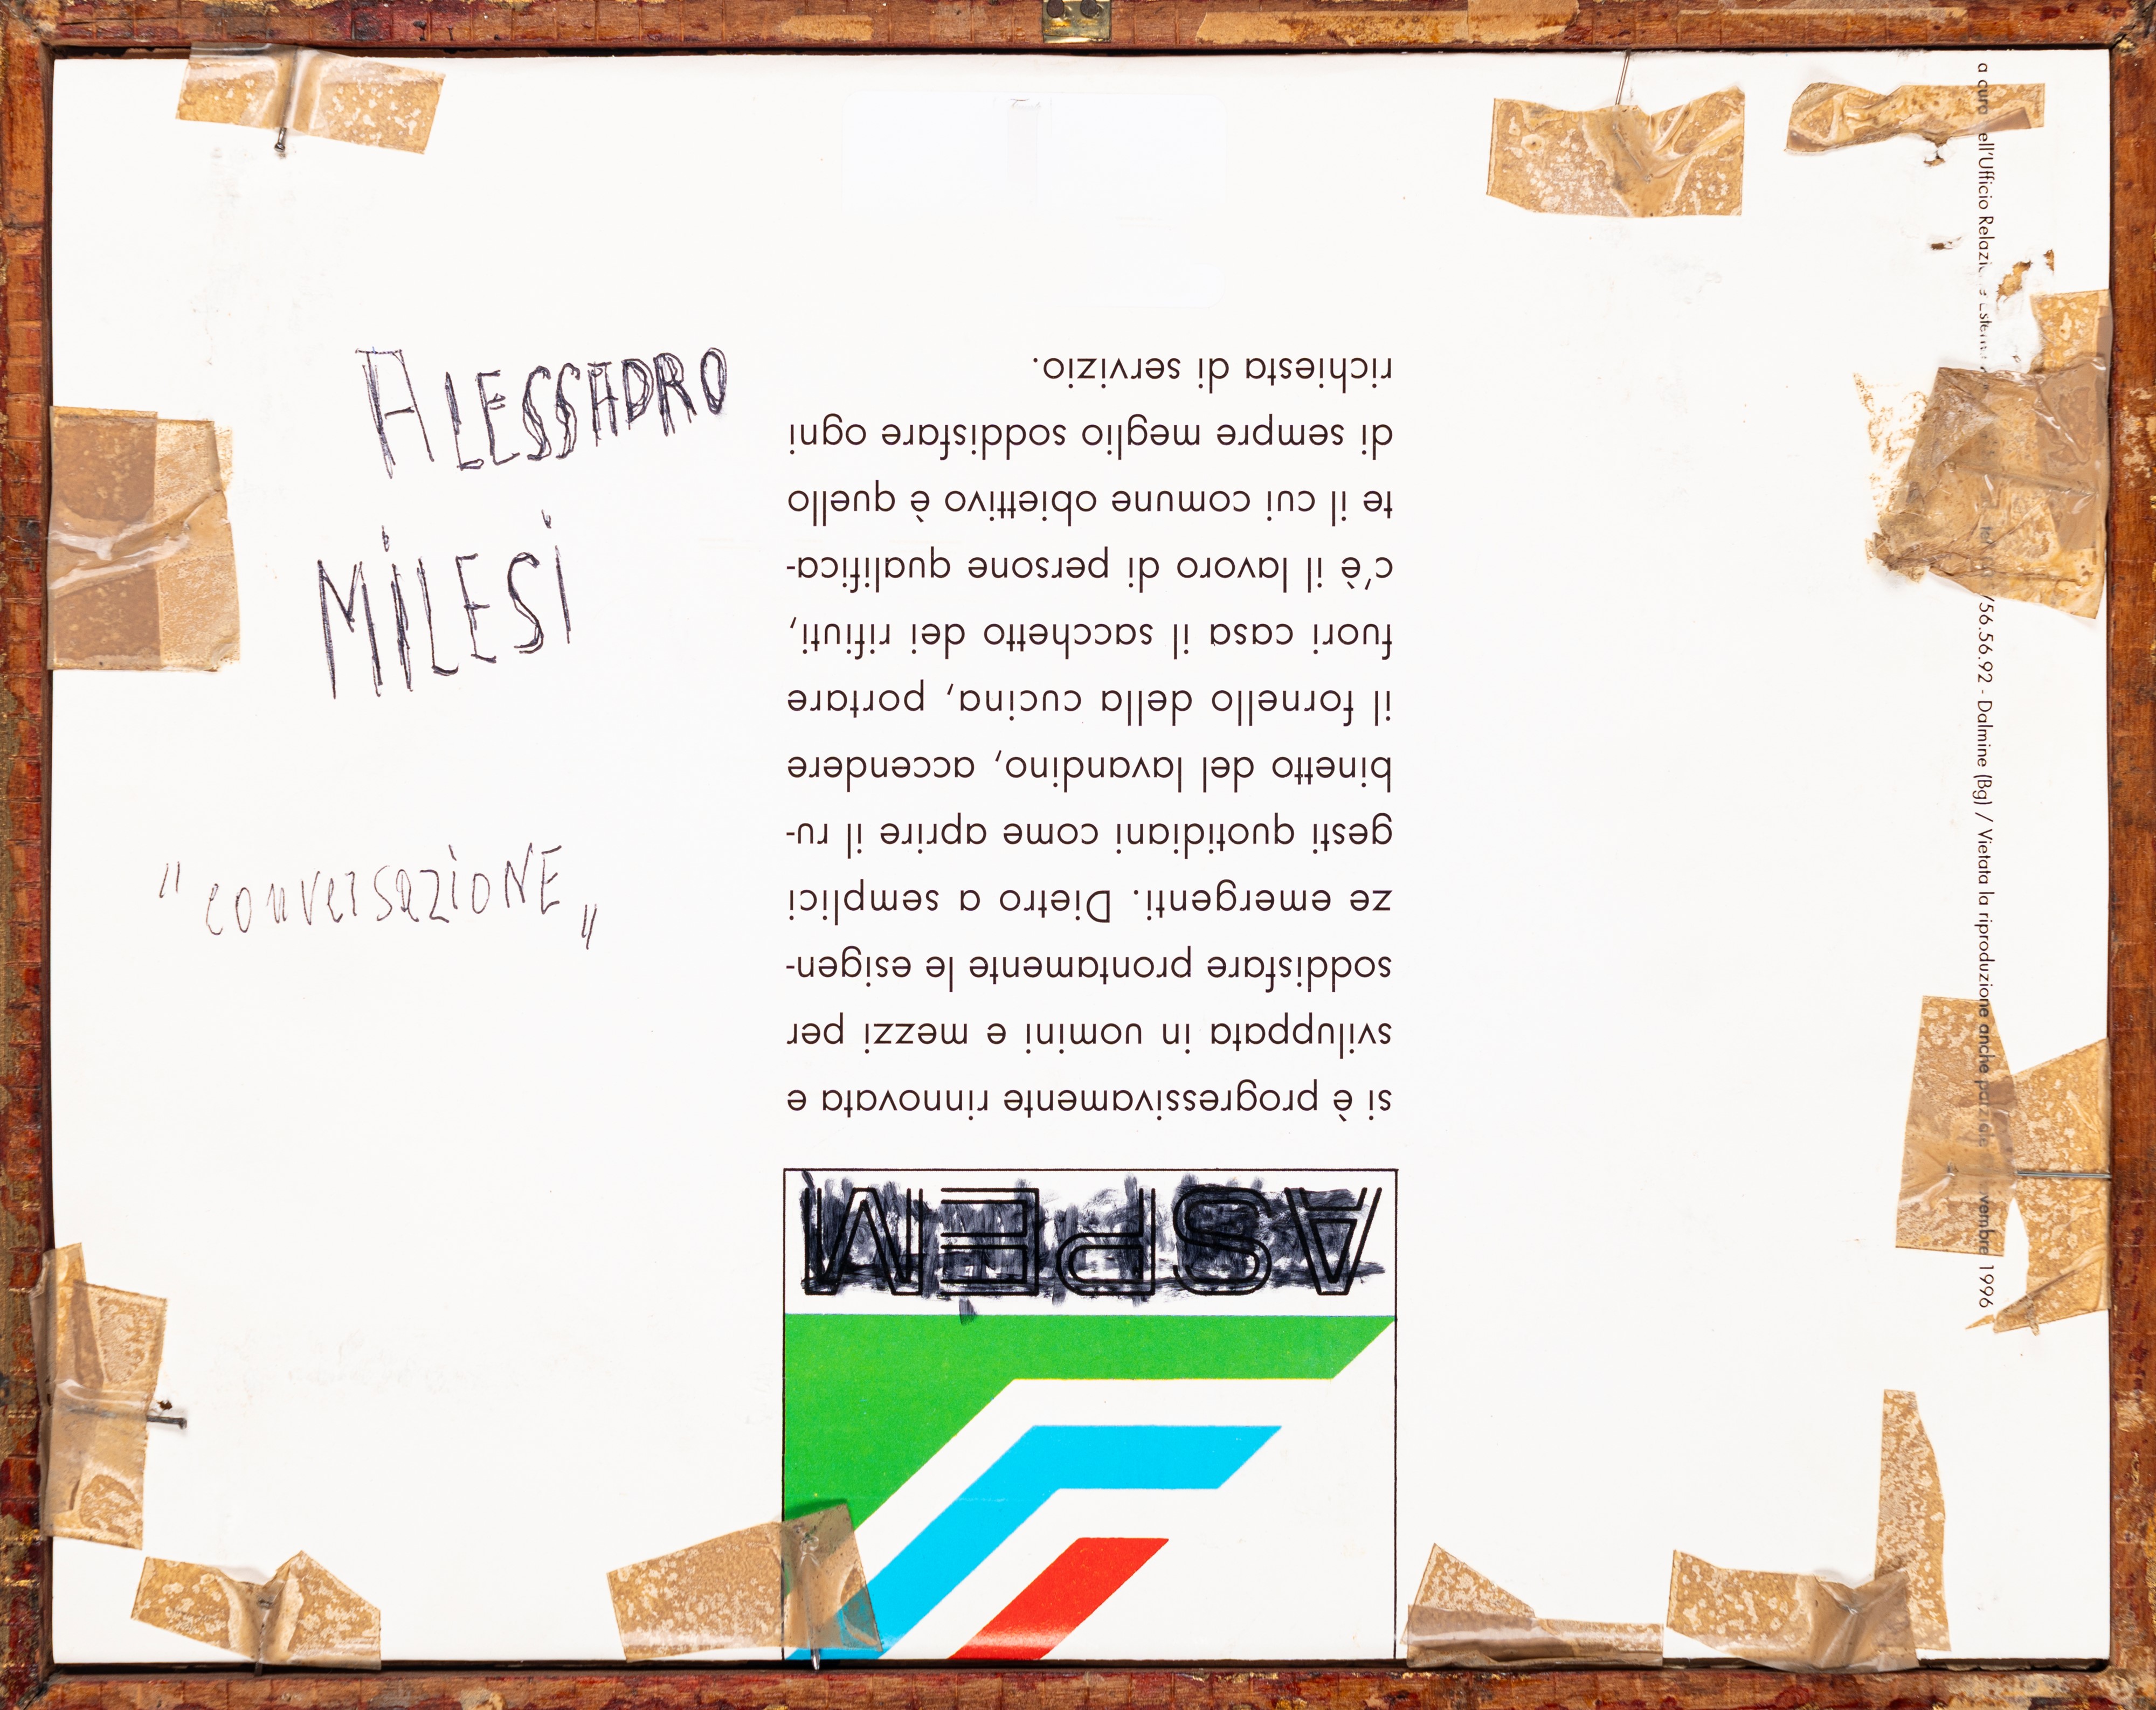 ALESSADRO
MILESI
"conversazione"
ASPEM
si è progressivamente rinnovata e
sviluppata in uomini e mezzi per
soddisfare prontamente le esigen-
ze emergenti. Dietro a semplici
gesti quotidiani come aprire il ru-
binetto del lavandino, accendere
il fornello della cucina, portare
fuori casa il sacchetto dei rifiuti,
c'è il lavoro di persone qualifica-
te il cui comune obiettivo è quello
di sempre meglio soddisfare ogni
richiesta di servizio.
a cura ell'Ufficio /56.56.92 - Dalmine (Bg) / Vietata la riproduzione anche 1996